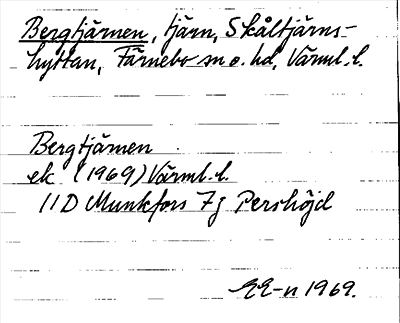 Bergtjärnen, tjärn, Skåltjärns-
hyttan, Färnebo sn o. hd, Värml. l.
Bergtjärnen
ek (1969) Värml. l.
11D Munkfors 7j Pershöjd
EE-n 1969.